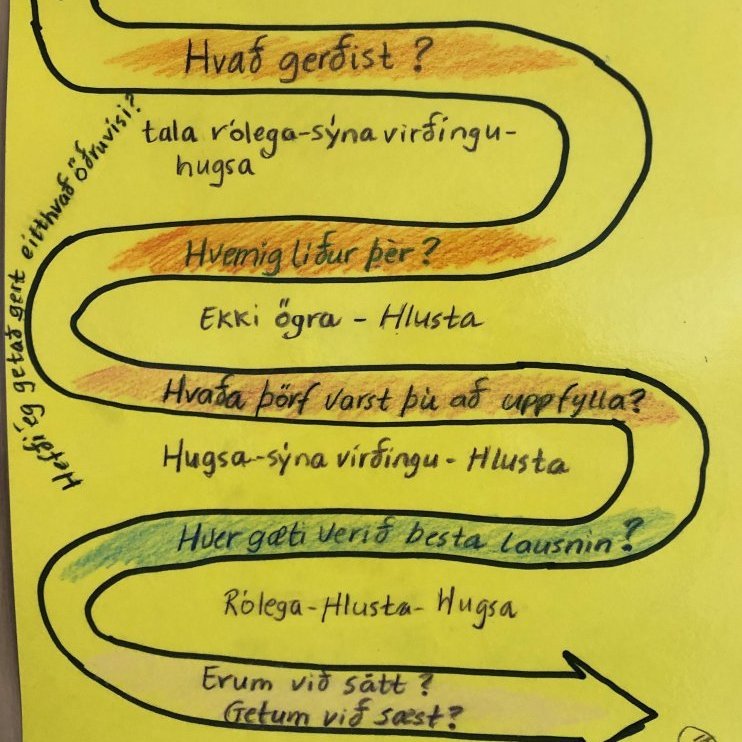 Hvað gerðist?
tala rólega-sýna virðingu-
hugsa
Hefði ég getað gert eitthvað öðruvísi?
Hvernig líður þèr?
Ekki ögra - Hlusta
Hvaða þörf varst þù að uppfylla?
Hugsa-sýna virðingu- Hlusta
Hver gæti verið besta lausnin?
Rólega-Hlusta- Hugsa
Erum við sátt?
Getum við sæst?